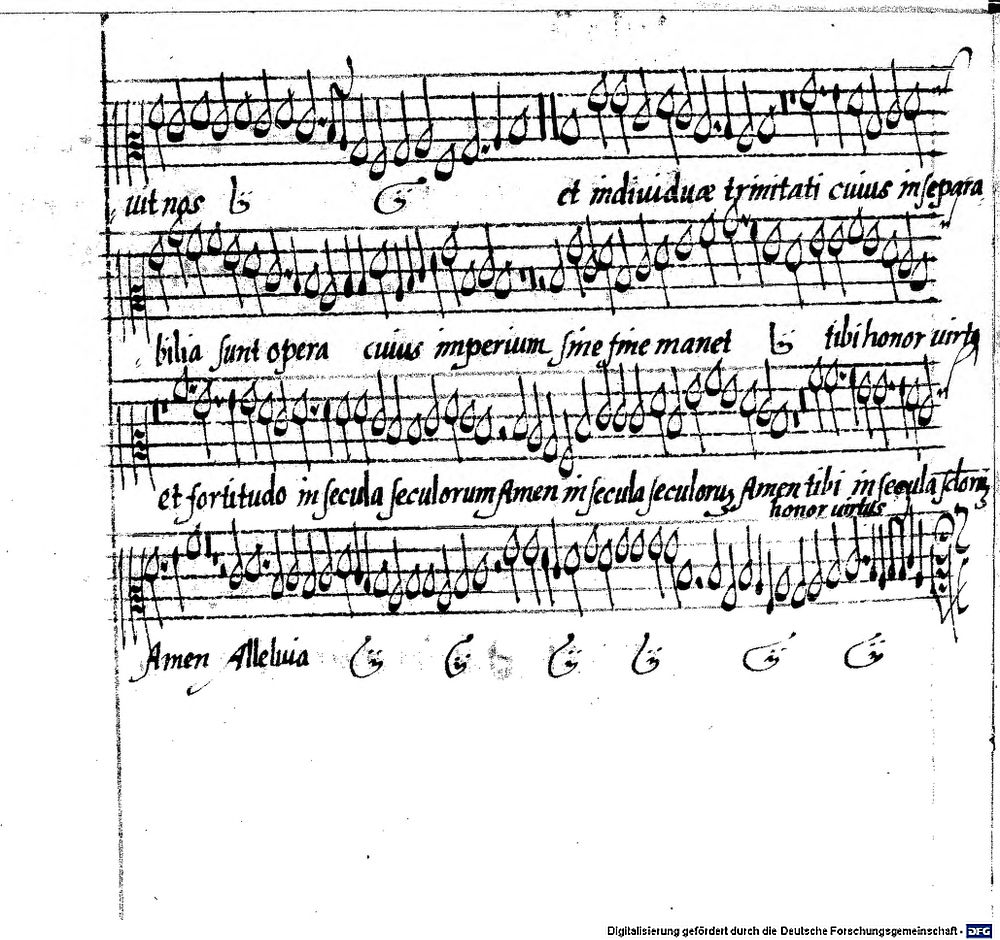 uit nos ij ij et indiuiduæ trinitati cuius insepara
bilia sunt opera cuius imperium sine fine manet ij tibi honor virtꝰ
et fortitudo in secula seculorum Amen in secula seculoruꝫ Amen tibi in secula scloruꝫ
honor virtus
Amen Alleluia ij ij ij ij ij ij
Digitalisierung gefördert durch die Deutsche Forschungsgemeinschaft - DFG